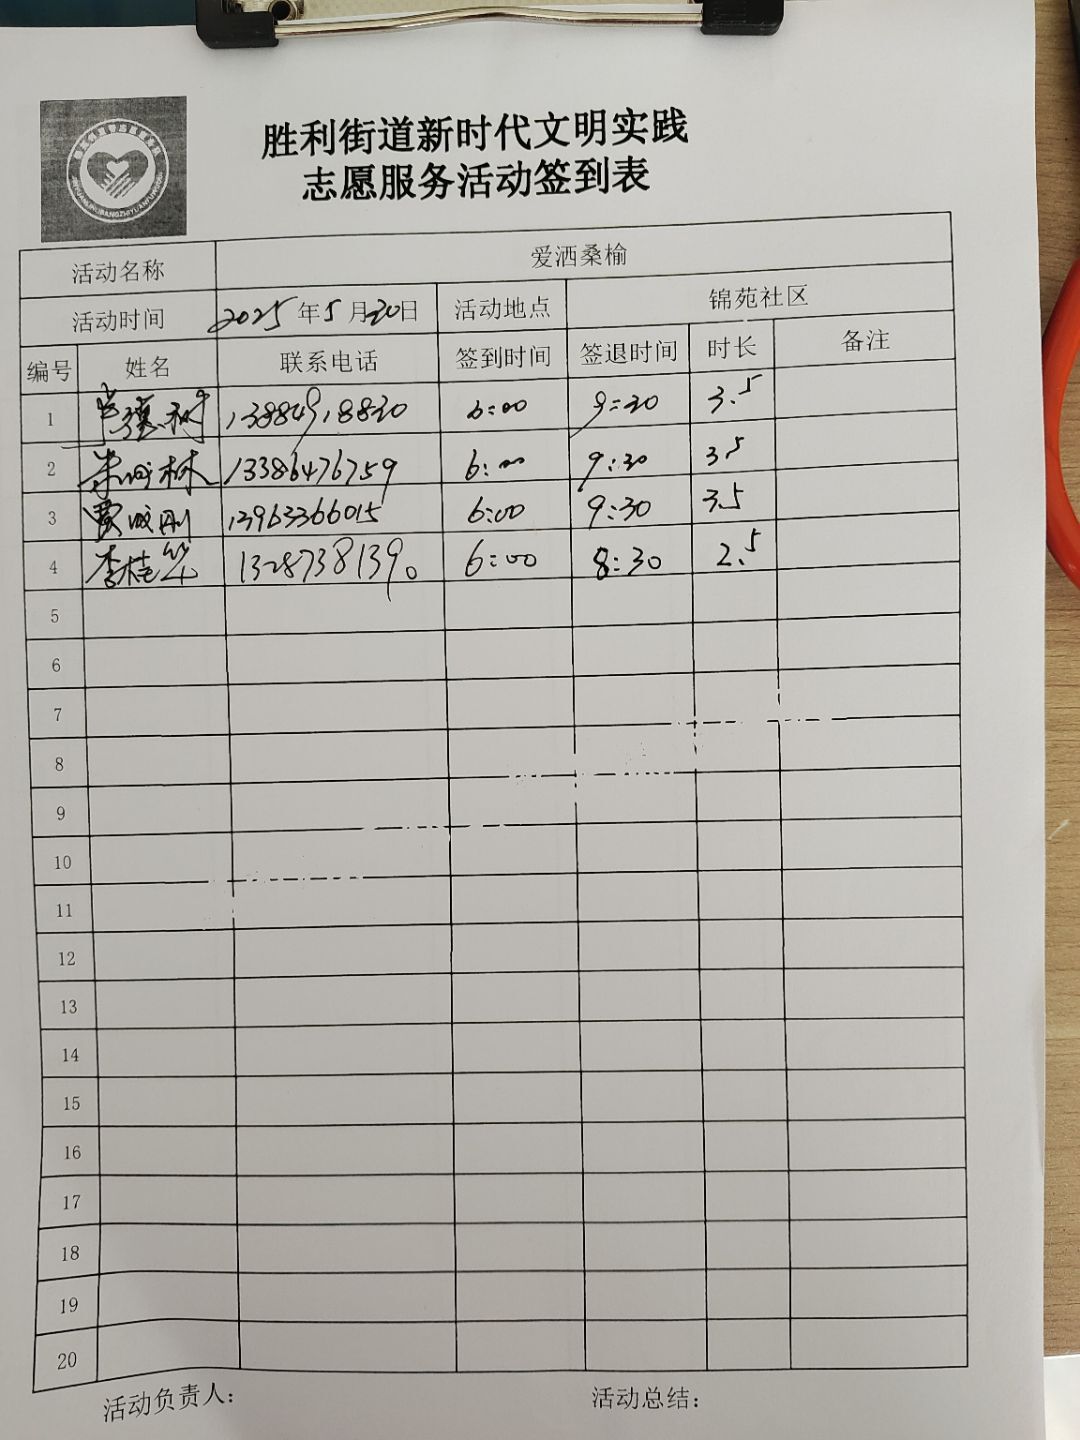 胜利街道新时代文明实践
志愿服务活动签到表
活动名称 爱洒桑榆
活动时间 2025年5月20日 活动地点 锦苑社区
编号 姓名 联系电话 签到时间 签退时间 时长 备注
1 13884918820 6:00 9:30 3.5
2 朱成林 13386476759 6:00 9:30 3.5
3 贾成刚 13963366015 6:00 9:30 3.5
4 李桂华 13287381390 6:00 8:30 2.5
5
6
7
8
9
10
11
12
13
14
15
16
17
18
19
20
活动负责人: 活动总结: